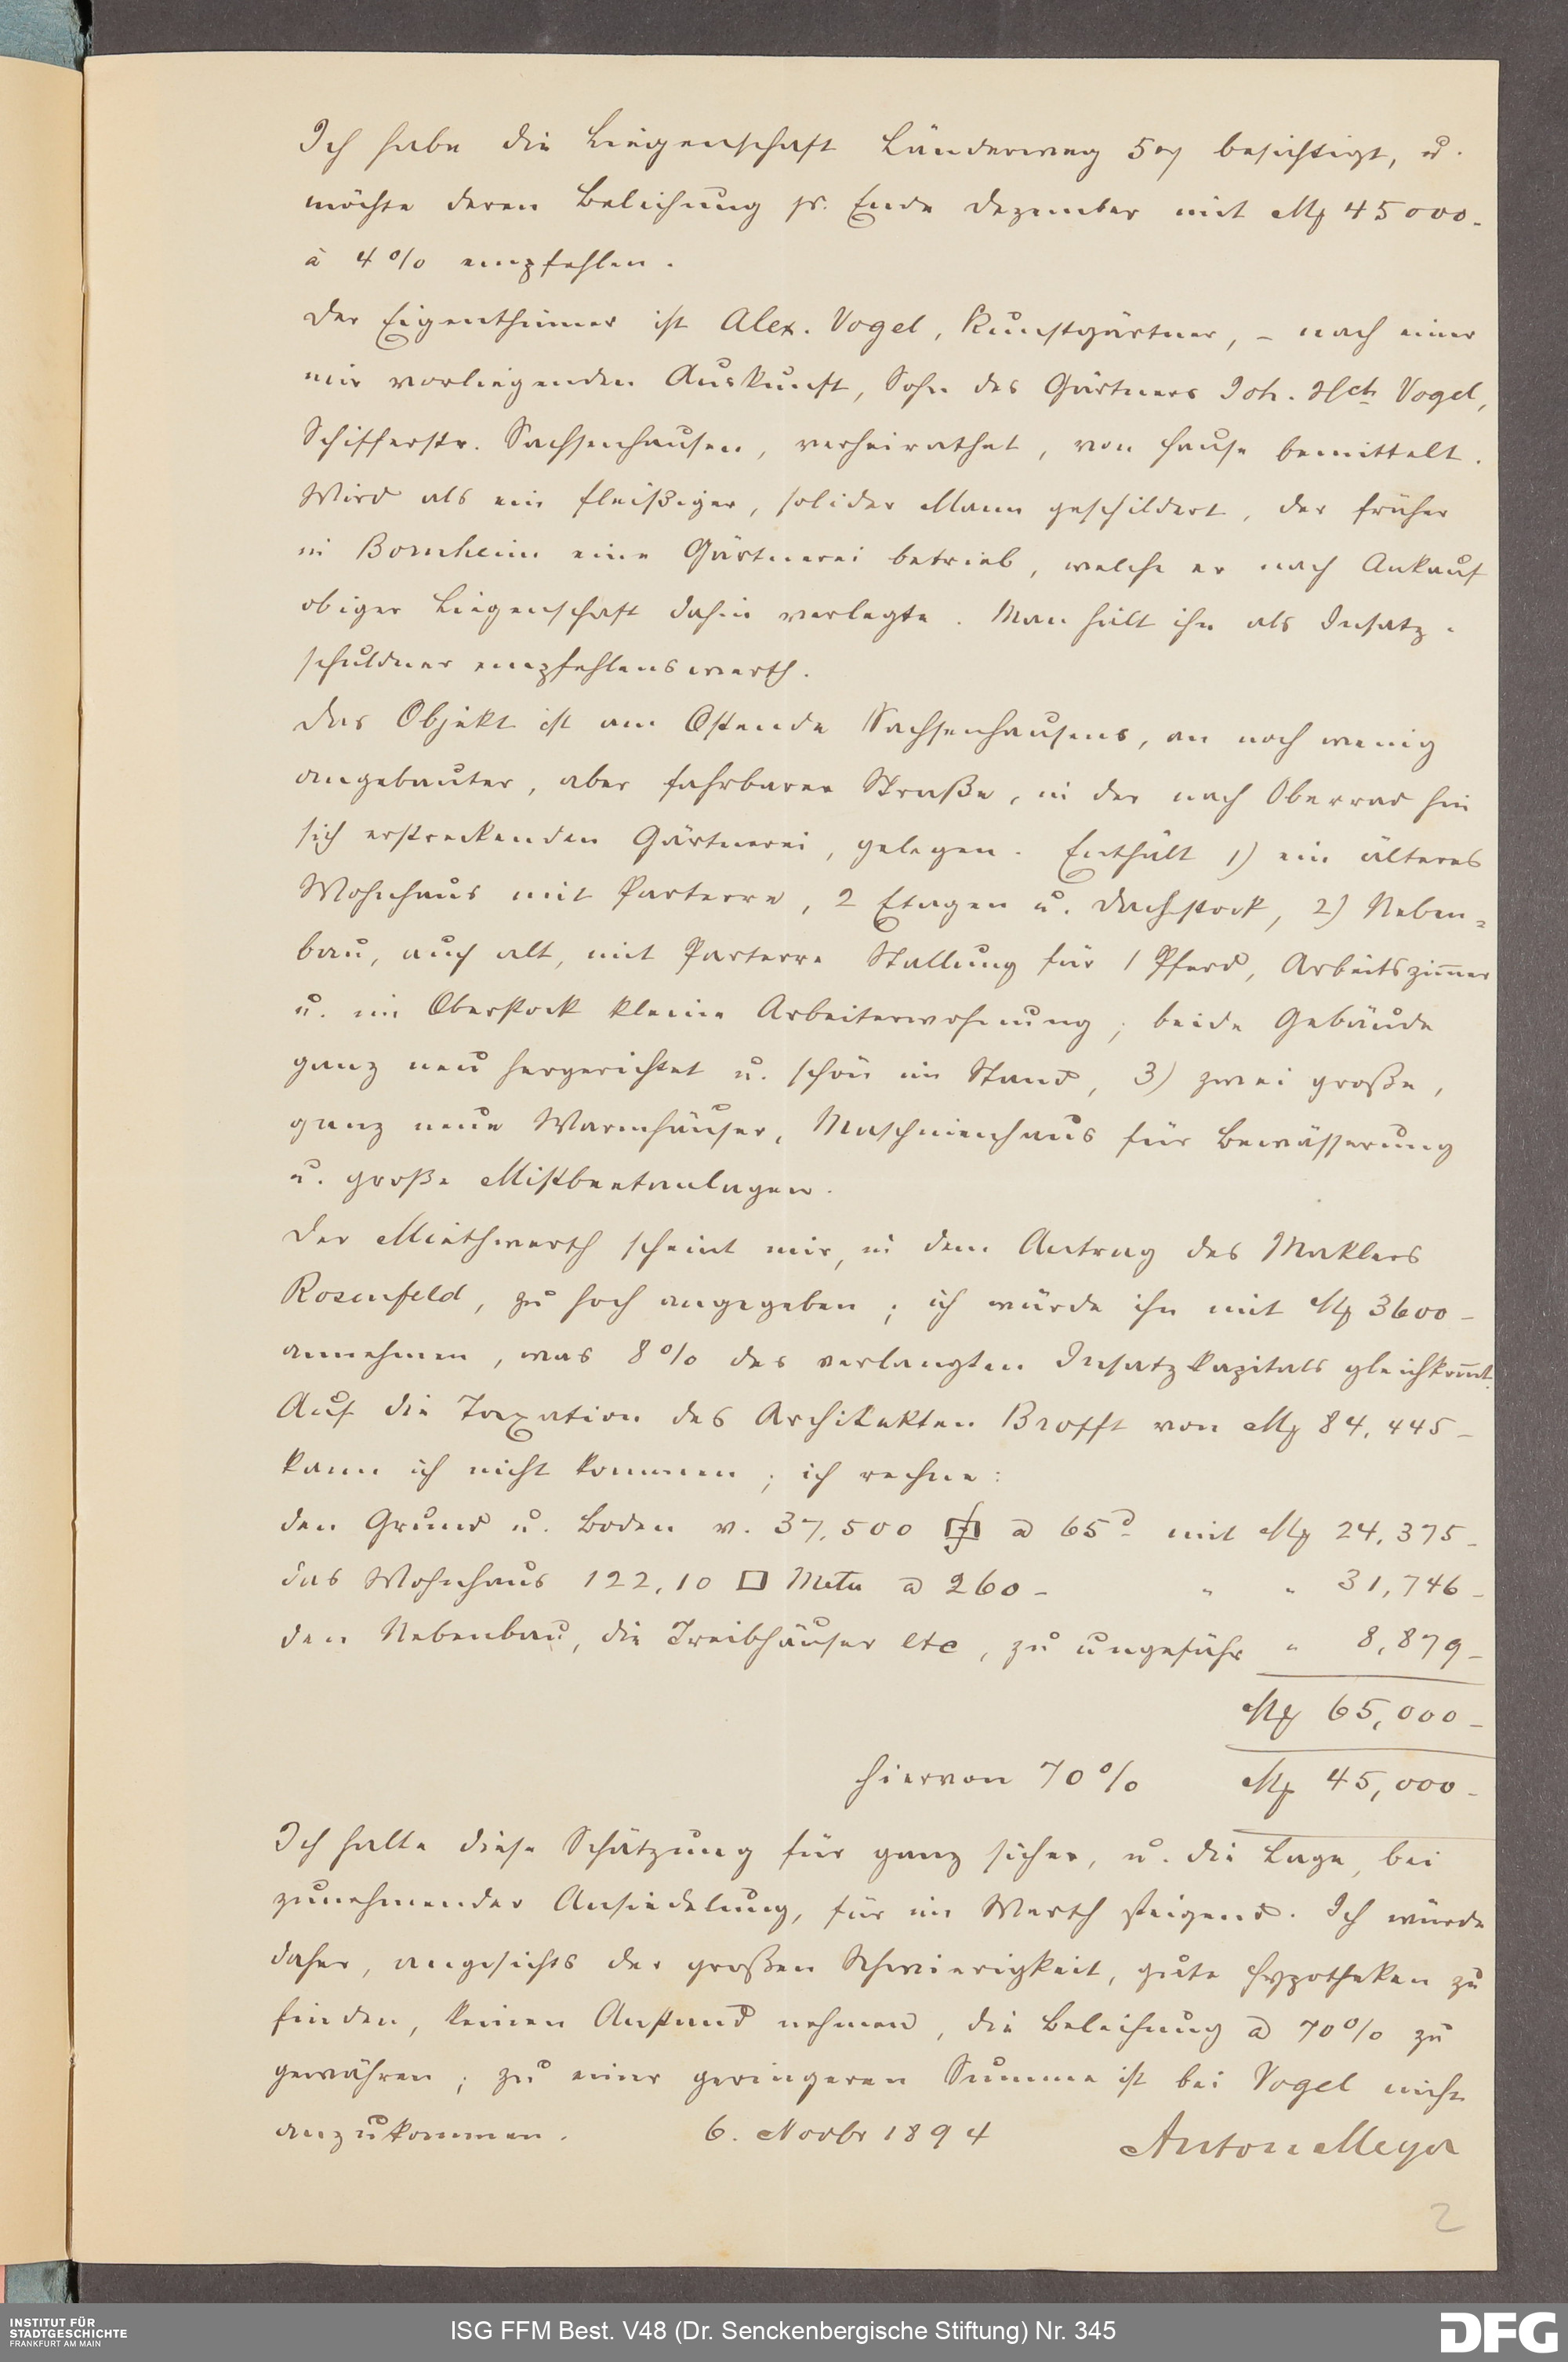 Ich habe die Liegenschaft Länderweg 57 besichtigt, u.
möchte deren Beleihung pr. Ende Dezember mit M 45000.
à 4% empfehlen.
Der Eigenthümer ist Alex. Vogel, Kunstgärtner, – nach einer
mir vorliegenden Auskunft, Sohn des Gärtners Joh. Hch Vogel,
Schifferstr. Sachsenhausen, verheirathet, von Hause bemittelt.
Wird als ein fleißiger, solider Mann geschildert, der früher
in Bornheim eine Gärtnerei betrieb, welche er nach Ankauf
obiger Liegenschaft dahin verlegte. Man hält ihn als Insatz-
schuldner empfehlenswerth.
Das Objekt ist am Ostende Sachsenhausens, an noch wenig
angebauter, aber fahrbarer Straße, in der nach Oberrad hin
sich erstreckenden Gärtnerei, gelegen. Enthält 1) ein älteres
Wohnhaus mit Parterre, 2 Etagen u. Dachstock, 2) Neben=
bau, auch alt, mit Parterre Stallung für 1 Pferd, Arbeitszim̅er
u. im Oberstock kleine Arbeiterwohnung; beide Gebäude
ganz neu hergerichtet u. schön im Stand, 3) zwei große,
ganz neue Warmhäuser, Maschinenhaus für Bewässerung
u. große Mistbeetanlagen.
Der Miethwerth scheint mir, in dem Antrag des Maklers
Rosenfeld, zu hoch angegeben; ich würde ihn mit M 3600 –
annehmen, was 8% des verlangten Insatzkapitals gleichkom̅t.
Auf die Taxation des Architekten Brofft von M 84,445 –
kann ich nicht kommen; ich rechne:
den Grund u. Boden v. 37,500 □ f a 65 d mit M 24,375 –
das Wohnhaus 122,10 □ Mete a 260 – " " 31,746 –
den Nebenbau, die Treibhäuser etc, zu ungefähr " 8,879 –
M 65,000 –
hiervon 70% M 45,000 –
Ich halte diese Schätzung für ganz sicher, u. die Lage, bei
zunehmender Ansiedelung, für im Werth steigend. Ich würde
daher, angesichts der großen Schwierigkeit, gute Hypotheken zu
finden, keinen Anstand nehmen, die Beleihung a 70% zu
gewähren; zu einer geringeren Summe ist bei Vogel nicht
anzukommen. 6. Novbr 1894 Anton Meyer
2
INSTITUT FÜR
STADTGESCHICHTE
FRANKFURT AM MAIN
ISG FFM Best. V48 (Dr. Senckenbergische Stiftung) Nr. 345
DFG